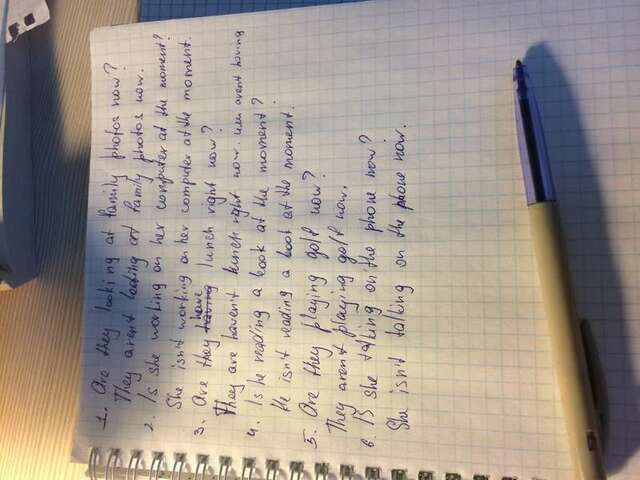 1. Are they looking at family photos now?
They aren't looking at family photos now.
2. Is she working on her computer at the moment?
She isn't working on her computer at the moment.
3. Are they having have lunch right now?
They are haven't lunch right now. или arent having
4. Is he reading a book at the moment?
He isn't reading a book at the moment.
5. Are they playing golf now?
They aren't playing golf now.
6. Is she talking on the phone now?
She isn't talking on the phone now.